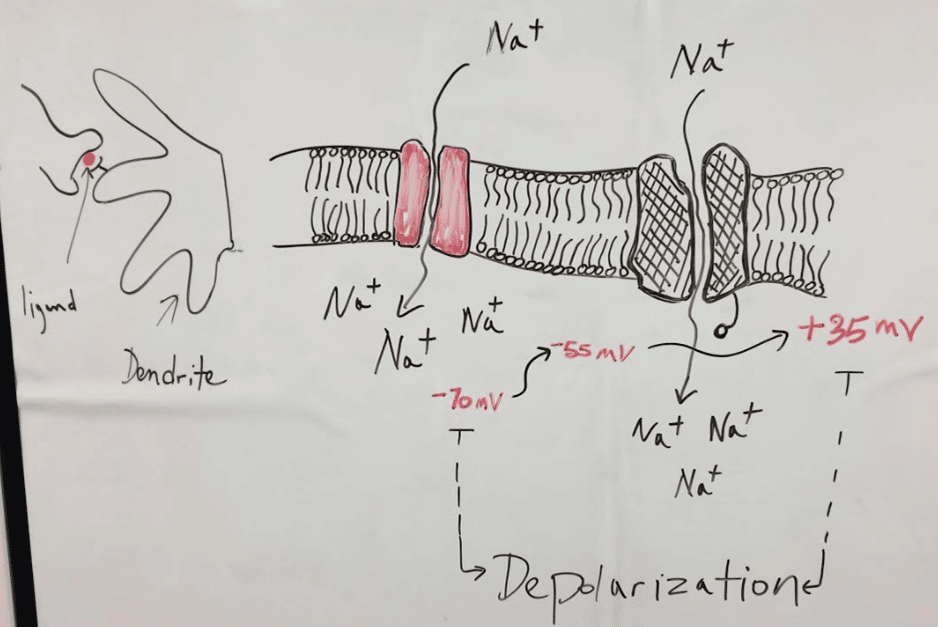 Na⁺
Na⁺
ligand
Dendrite
Na⁺
Na⁺
Na⁺
-70mV
-55mV
+35mV
Na⁺ Na⁺
Na⁺
Depolarization